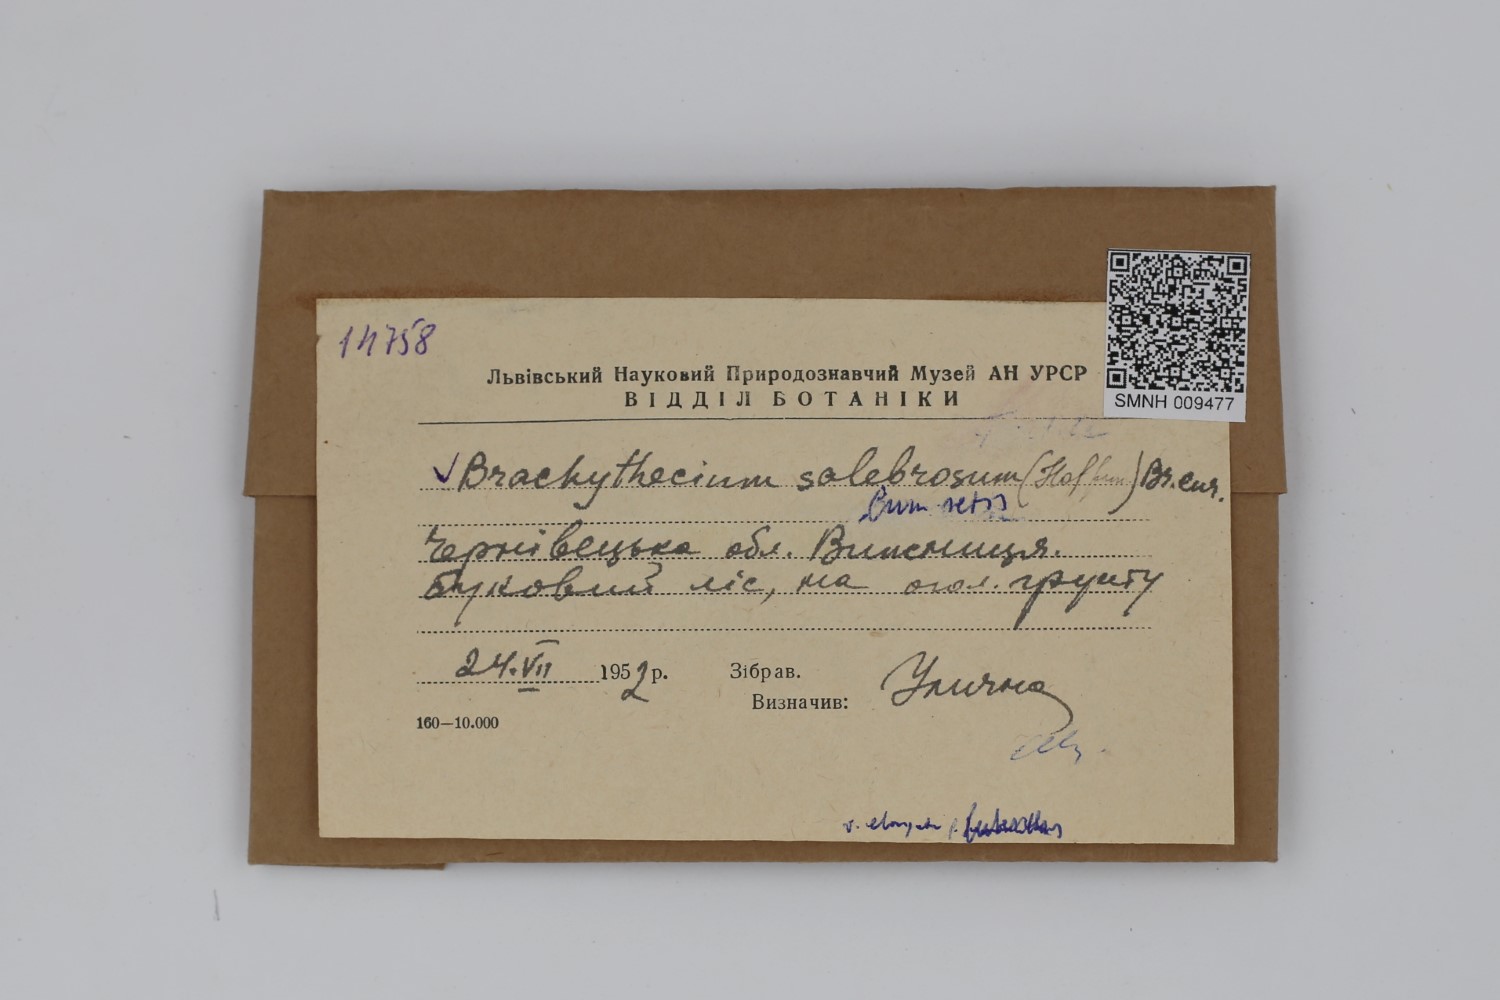 14758
Львівський Науковий Природознавчий Музей АН УРСР
ВІДДІЛ БОТАНІКИ
SMNH 009477
✓ Brachythecium salebrosum (Hoffm.) Br. eur.
Чернівецька обл. Вижниця.
Буковий ліс, на огол. грунту
24.VII 1952 р. Зібрав.
Визначив: Улична
160—10.000